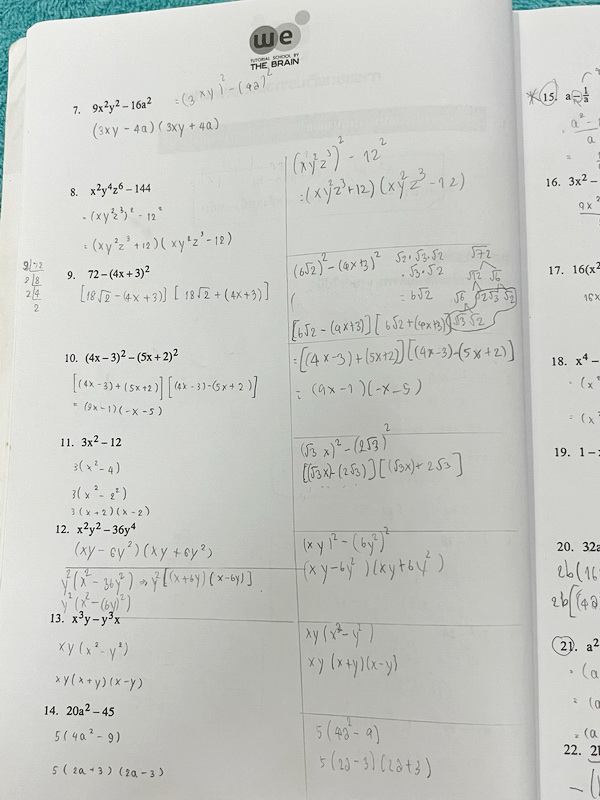 we
TUTORIAL SCHOOL BY
THE BRAIN
7. 9x²y² – 16a² = (3xy)² – (4a)²
(3xy – 4a)(3xy + 4a)
8. x²y⁴z⁶ – 144
= (xy²z³)² – 12²
= (xy²z³ + 12)(xy²z³ – 12)
(xy²z³)² – 12²
= (xy²z³ + 12)(xy²z³ – 12)
9. 72 – (4x + 3)²
[18√2 – (4x + 3)] [18√2 + (4x + 3)]
(6√2)² – (4x + 3)²
√2·√3·√2
·√3·√2
= 6√2
√72
√12 √6
√6 √2 √3 √2
√3 √2
[6√2 – (4x+3)] [6√2 + (4x+3)]
10. (4x – 3)² – (5x + 2)²
[(4x – 3) + (5x + 2)] [(4x – 3) – (5x + 2)]
= (9x – 1)(–x – 5)
= [(4x – 3) + (5x + 2)] [(4x – 3) – (5x + 2)]
= (9x – 1)(–x – 5)
11. 3x² – 12
3(x² – 4)
3(x² – 2²)
3(x + 2)(x – 2)
(√3 x)² – (2√3)²
[(√3x) – (2√3)] [(√3x) + 2√3]
12. x²y² – 36y⁴
(xy – 6y²)(xy + 6y²)
y²(x² – 36y²) ⇒ y²[(x + 6y)(x – 6y)]
y²(x² – (6y)²)
(xy)² – (6y²)²
(xy – 6y²)(xy + 6y²)
13. x³y – y³x
xy(x² – y²)
xy(x + y)(x – y)
xy(x² – y²)
xy(x + y)(x – y)
14. 20a² – 45
5(4a² – 9)
5(2a + 3)(2a – 3)
5(4a² – 9)
5(2a – 3)(2a + 3)
15. a – 1/a
16. 3x² –
17. 16(x²
18. x⁴ –
19. 1 –
20. 32a
21. a²
22.